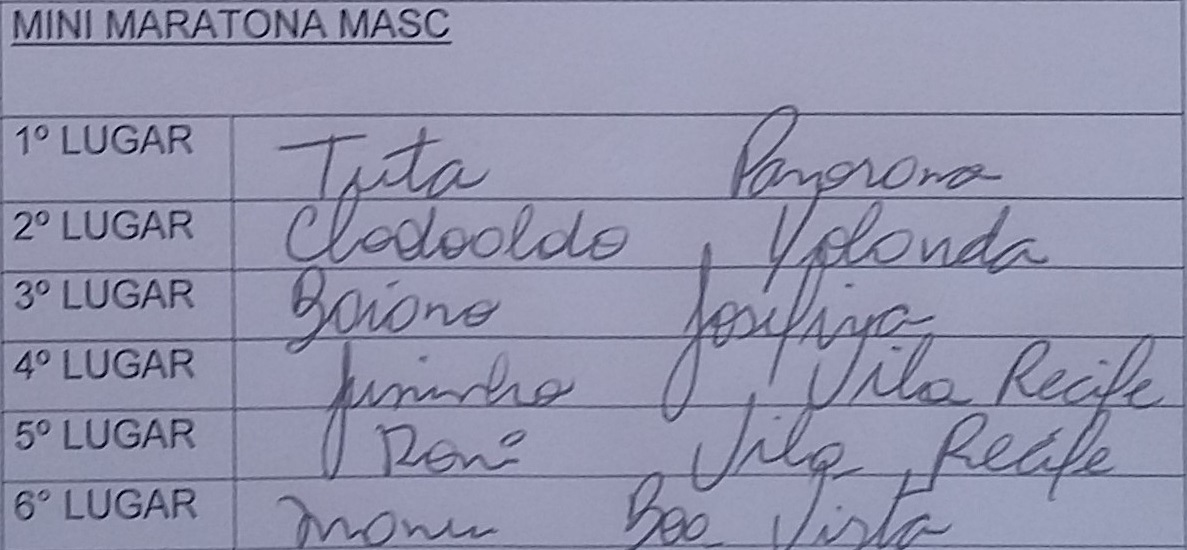 MINI MARATONA MASC
1º LUGAR Tuta Panorama
2º LUGAR Clodoaldo Yolanda
3º LUGAR Baiano Josefina
4º LUGAR Juninho Vila Recife
5º LUGAR Roni Vila Recife
6º LUGAR Boa Vista